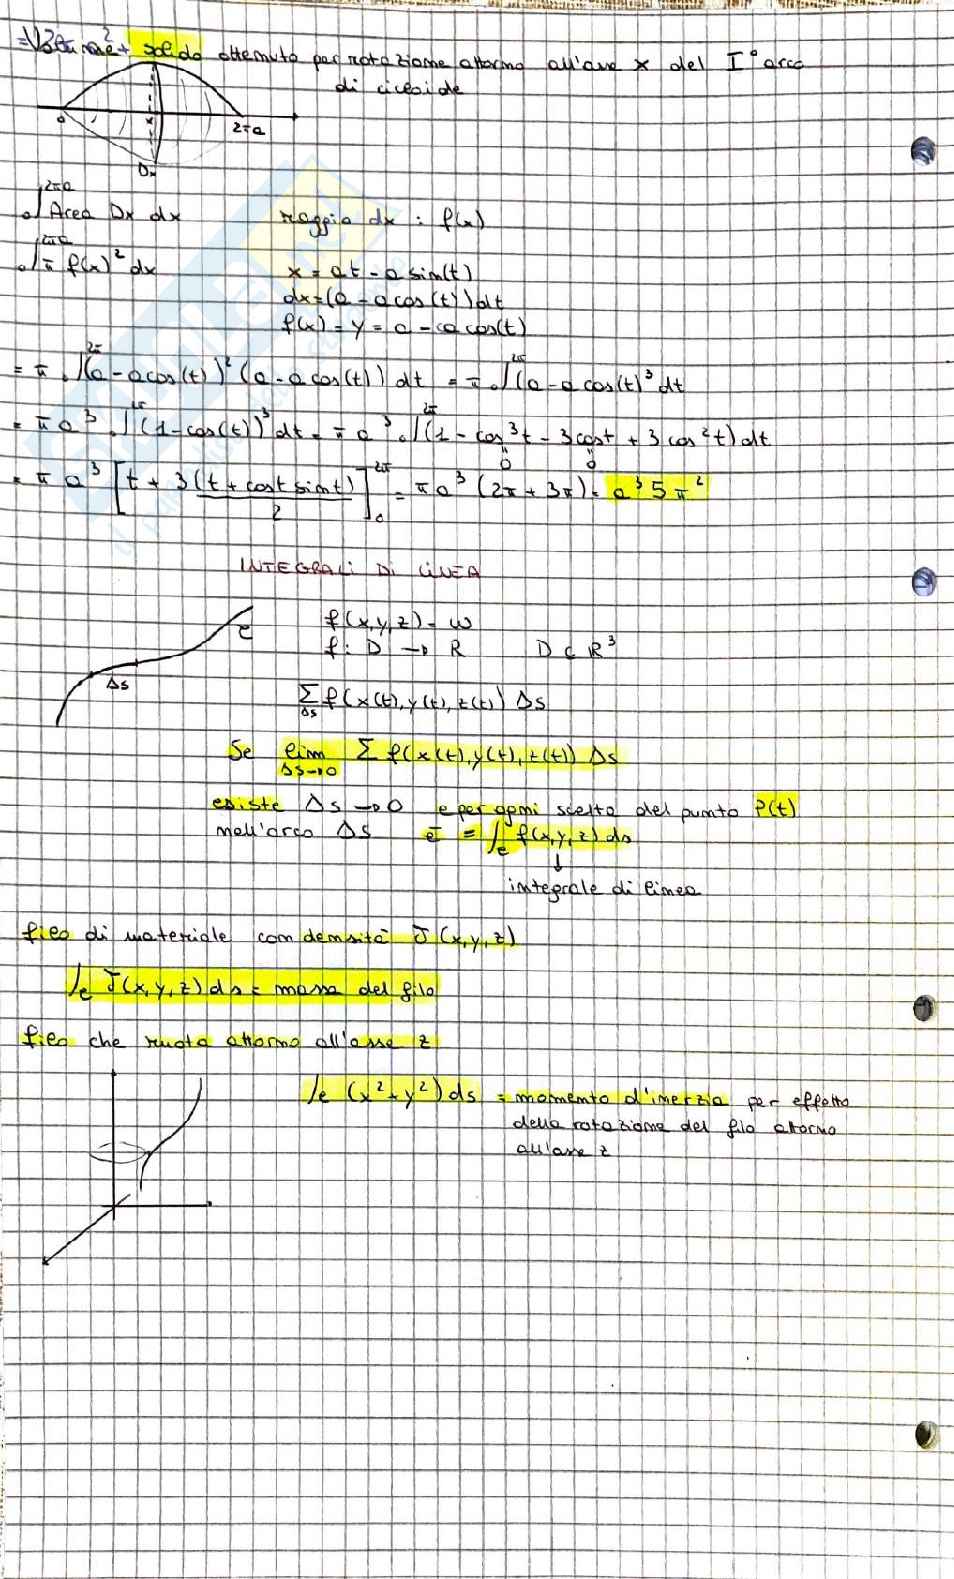 Volume solido ottenuto per rotazione attorno all'asse x del I° arco
di cicloide
0 x 2πa
Dx
₀∫^2πa Area Dx dx raggio dx : f(x)
₀∫^2πa π f(x)² dx x = at - a sin(t)
dx = (a - a cos(t)) dt
f(x) = y = a - a cos(t)
= π ₀∫^2π (a - a cos(t))² (a - a cos(t)) dt = π ₀∫^2π (a - a cos(t)³ dt
= π a³ ₀∫^2π (1 - cos(t))³ dt = π a³ ₀∫^2π (1 - cos³t - 3cost + 3cos²t) dt
0 0
= π a³ [t + 3(t + cost sint)/2]₀^2π = π a³ (2π + 3π) = a³ 5 π²
INTEGRALI DI LINEA
e f(x,y,z) = w
f : D → R D ⊂ R³
Δs
Σ_Δs f(x(t), y(t), z(t)) Δs
Se lim_Δs→0 Σ f(x(t), y(t), z(t)) Δs
esiste Δs → 0 e per ogni scelta del punto P(t)
nell'arco Δs è = ∫e f(x,y,z) ds
↓
integrale di linea
filo di materiale con densità J(x,y,z)
∫e J(x,y,z) ds = massa del filo
filo che ruota attorno all'asse z
∫e (x² + y²) ds = momento d'inerzia per effetto
della rotazione del filo attorno
all'asse z